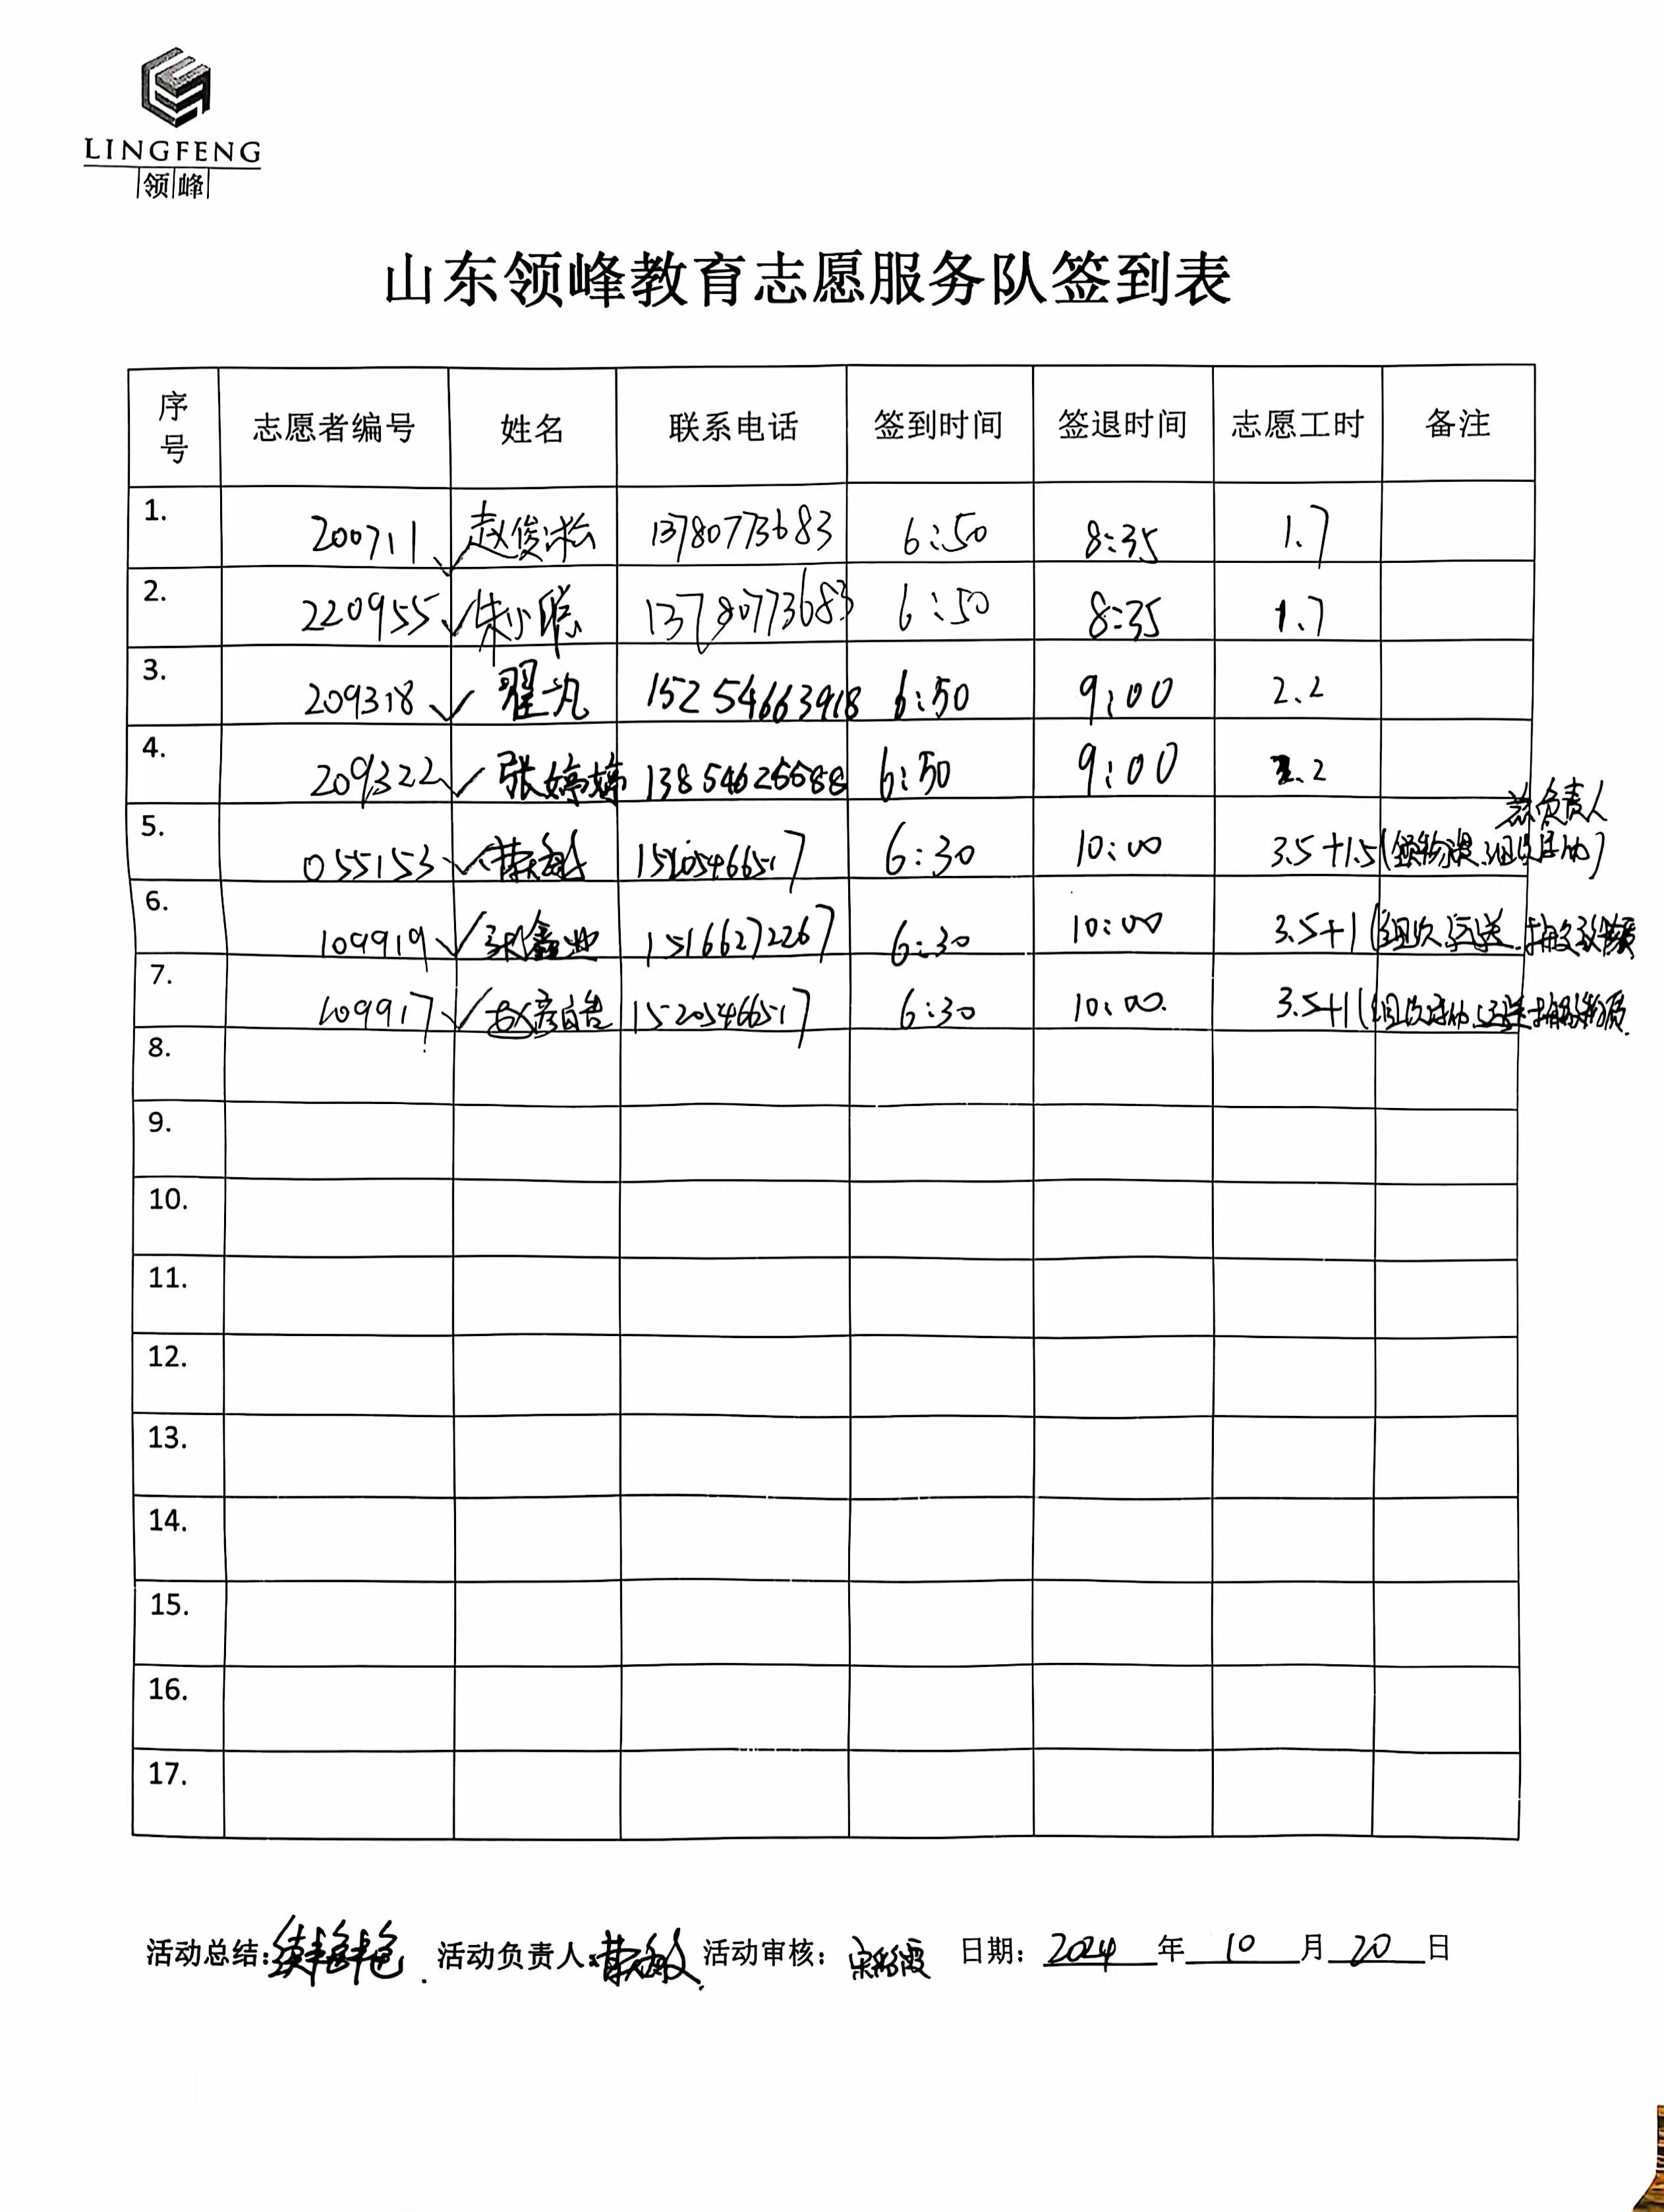 LINGFENG
领峰
山东领峰教育志愿服务队签到表
序号 志愿者编号 姓名 联系电话 签到时间 签退时间 志愿工时 备注
1. 200711 赵俊淞 13780773683 6:50 8:35 1.7
2. 220955 朱小聪 13780773683 6:50 8:35 1.7
3. 209318 翟一凡 15254663918 6:50 9:00 2.2
4. 209322 张婷婷 13854626688 6:50 9:00 2.2
负责人
5. 055153 15205466517 6:30 10:00 3.5+1.5(领物资、组织活动)
6. 109919 张鑫业 15166272267 6:30 10:00 3.5+1(组织运送
7. 109917 赵彦皓 15205466517 6:30 10:00. 3.5+1(组织活动、运送 物资.
8.
9.
10.
11.
12.
13.
14.
15.
16.
17.
活动总结: 活动负责人: 活动审核: 宋彩霞 日期: 2024 年 10 月 20 日